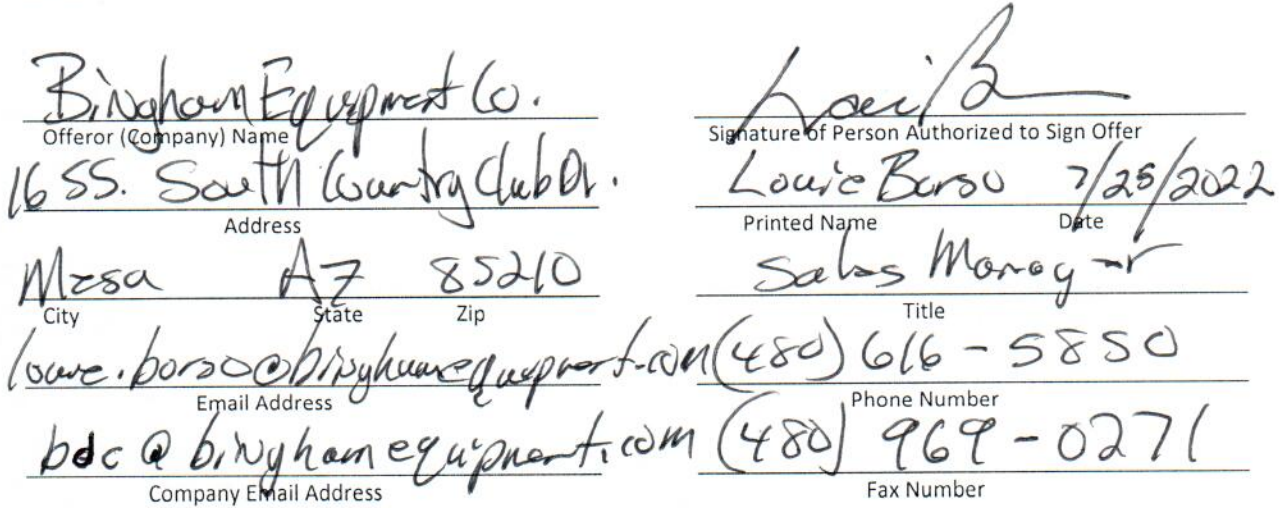 Bingham Equipment Co.
Offeror (Company) Name
1655. South Country Club Dr.
Address
Mesa AZ 85210
City State Zip
louie.borso@binghamequipment.com
Email Address
bdc@binghamequipment.com
Company Email Address
Signature of Person Authorized to Sign Offer
Louie Borso 7/25/2022
Printed Name Date
Sales Manager
Title
(480) 616-5850
Phone Number
(480) 969-0271
Fax Number